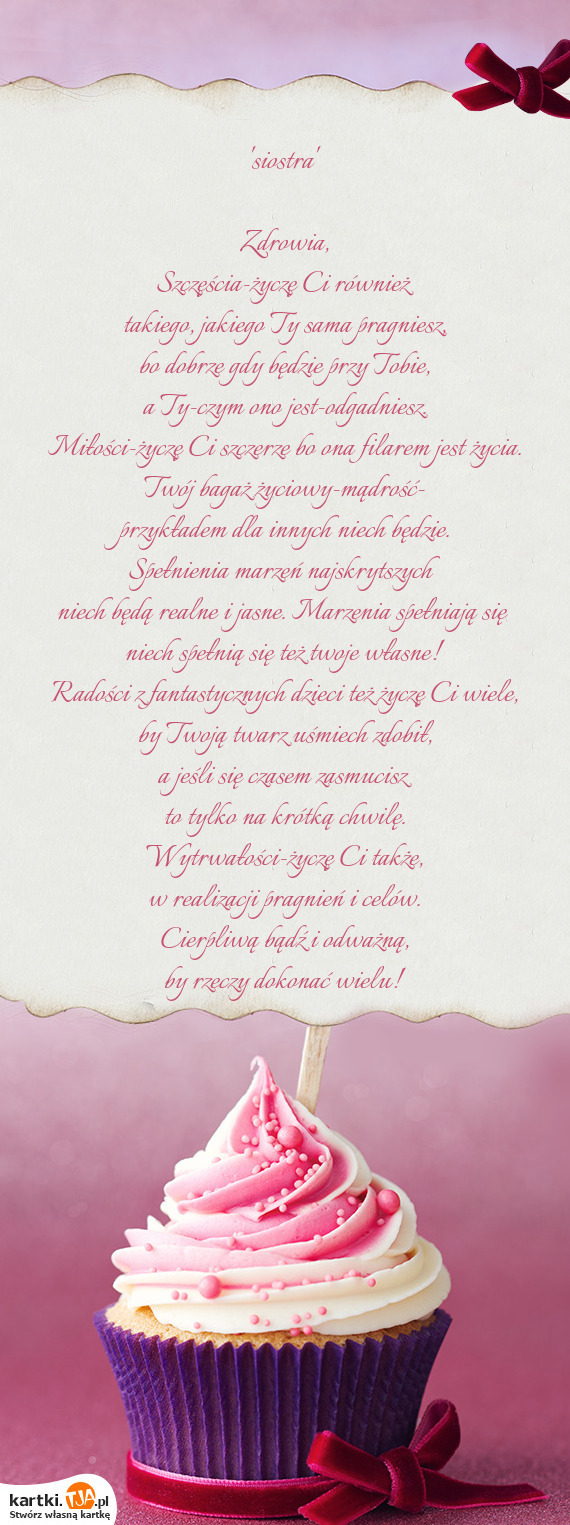 'siostra'
Zdrowia,
Szczęścia-życzę Ci również
takiego, jakiego Ty sama pragniesz,
bo dobrze gdy będzie przy Tobie,
a Ty-czym ono jest-odgadniesz.
Miłości-życzę Ci szczerze bo ona filarem jest życia.
Twój bagaż życiowy-mądrość-
przykładem dla innych niech będzie.
Spełnienia marzeń najskrytszych
niech będą realne i jasne. Marzenia spełniają się
niech spełnią się też twoje własne!
Radości z fantastycznych dzieci też życzę Ci wiele,
by Twoją twarz uśmiech zdobił,
a jeśli się czasem zasmucisz
to tylko na krótką chwilę.
Wytrwałości-życzę Ci także,
w realizacji pragnień i celów.
Cierpliwą bądź i odważną,
by rzeczy dokonać wielu!
kartki.TJA.pl
Stwórz własną kartkę